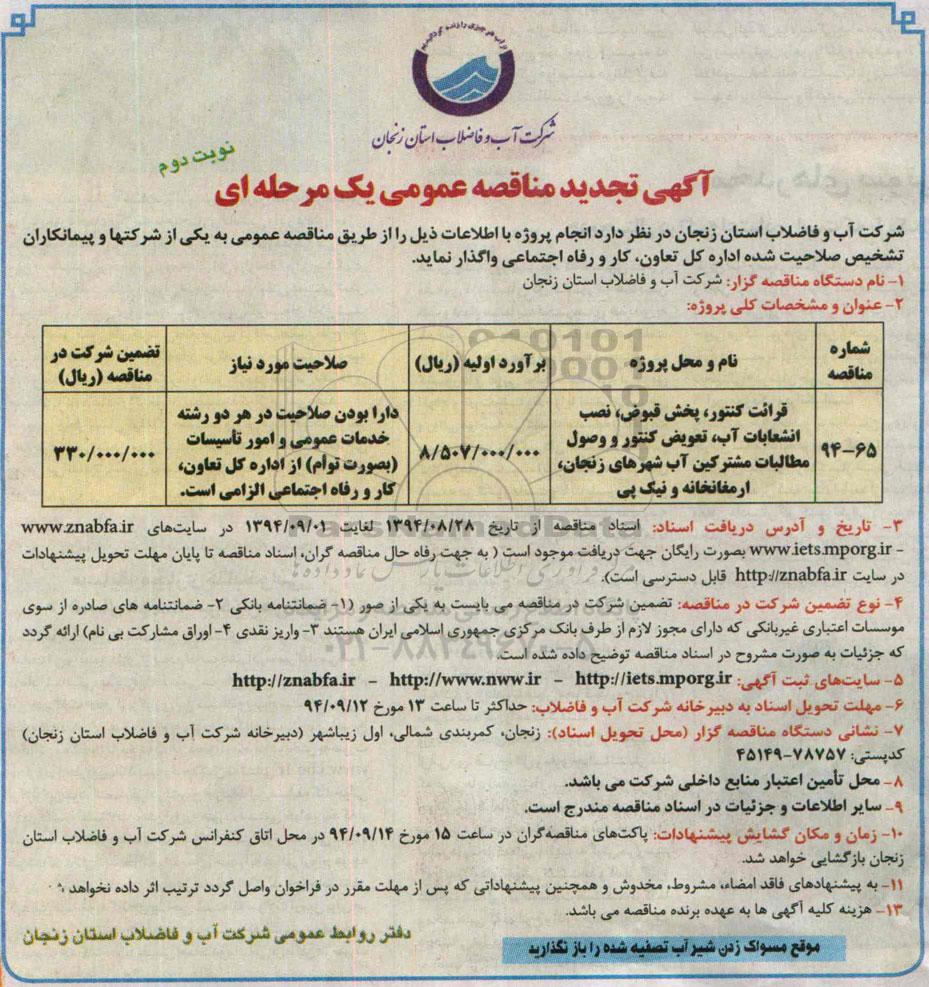 از آب هر چیزی را زنده گردانیدیم
شرکت آب و فاضلاب استان زنجان
نوبت دوم
آگهی تجدید مناقصه عمومی یک مرحله ای
شرکت آب و فاضلاب استان زنجان در نظر دارد انجام پروژه با اطلاعات ذیل را از طریق مناقصه عمومی به یکی از شرکتها و پیمانکاران
تشخیص صلاحیت شده اداره کل تعاون، کار و رفاه اجتماعی واگذار نماید.
۱- نام دستگاه مناقصه گزار: شرکت آب و فاضلاب استان زنجان
۲- عنوان و مشخصات کلی پروژه:
شماره مناقصه | نام و محل پروژه | برآورد اولیه (ریال) | صلاحیت مورد نیاز | تضمین شرکت در مناقصه (ریال)
۹۴-۶۵ | قرائت کنتور، پخش قبوض، نصب انشعابات آب، تعویض کنتور و وصول مطالبات مشترکین آب شهرهای زنجان، ارمغانخانه و نیک پی | ۸/۵۰۷/۰۰۰/۰۰۰ | دارا بودن صلاحیت در هر دو رشته خدمات عمومی و امور تأسیسات (بصورت توأم) از اداره کل تعاون، کار و رفاه اجتماعی الزامی است. | ۳۳۰/۰۰۰/۰۰۰
۳- تاریخ و آدرس دریافت اسناد: اسناد مناقصه از تاریخ ۱۳۹۴/۰۸/۲۸ لغایت ۱۳۹۴/۰۹/۰۱ در سایت‌های www.znabfa.ir
- www.iets.mporg.ir بصورت رایگان جهت دریافت موجود است ( به جهت رفاه حال مناقصه گران، اسناد مناقصه تا پایان مهلت تحویل پیشنهادات
در سایت http://znabfa.ir قابل دسترسی است).
۴- نوع تضمین شرکت در مناقصه: تضمین شرکت در مناقصه می بایست به یکی از صور (۱- ضمانتنامه بانکی ۲- ضمانتنامه های صادره از سوی
موسسات اعتباری غیربانکی که دارای مجوز لازم از طرف بانک مرکزی جمهوری اسلامی ایران هستند ۳- واریز نقدی ۴- اوراق مشارکت بی نام) ارائه گردد
که جزئیات به صورت مشروح در اسناد مناقصه توضیح داده شده است.
۵- سایت‌های ثبت آگهی: http://znabfa.ir - http://www.nww.ir - http://iets.mporg.ir
۶- مهلت تحویل اسناد به دبیرخانه شرکت آب و فاضلاب: حداکثر تا ساعت ۱۳ مورخ ۹۴/۰۹/۱۲
۷- نشانی دستگاه مناقصه گزار (محل تحویل اسناد): زنجان، کمربندی شمالی، اول زیباشهر (دبیرخانه شرکت آب و فاضلاب استان زنجان)
کدپستی: ۷۸۷۵۷-۴۵۱۴۹
۸- محل تأمین اعتبار منابع داخلی شرکت می باشد.
۹- سایر اطلاعات و جزئیات در اسناد مناقصه مندرج است.
۱۰- زمان و مکان گشایش پیشنهادات: پاکت‌های مناقصه‌گران در ساعت ۱۵ مورخ ۹۴/۰۹/۱۴ در محل اتاق کنفرانس شرکت آب و فاضلاب استان
زنجان بازگشایی خواهد شد.
۱۱- به پیشنهادهای فاقد امضاء، مشروط، مخدوش و همچنین پیشنهاداتی که پس از مهلت مقرر در فراخوان واصل گردد ترتیب اثر داده نخواهد
۱۳- هزینه کلیه آگهی ها به عهده برنده مناقصه می باشد.
دفتر روابط عمومی شرکت آب و فاضلاب استان زنجان
موقع مسواک زدن شیر آب تصفیه شده را باز نگذارید
ParsNamadData
۰۲۱-۸۸۳۴۹۶۷۰-۵